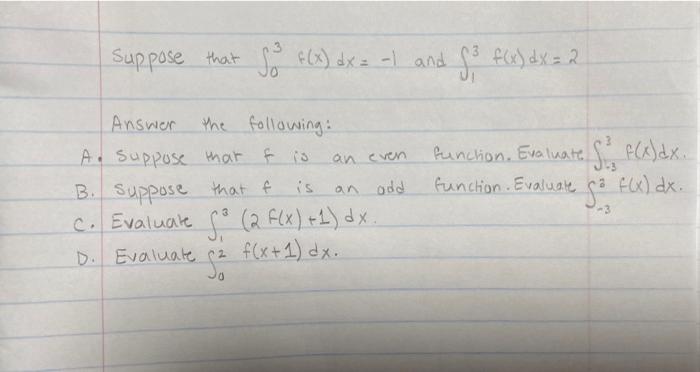 Suppose that ∫₀³ f(x) dx = -1 and ∫₁³ f(x) dx = 2
Answer the following:
A. Suppose that f is an even function. Evaluate ∫₋₃³ f(x) dx.
B. Suppose that f is an odd function. Evaluate ∫₋₃³ f(x) dx.
C. Evaluate ∫₁³ (2 f(x) + 1) dx.
D. Evaluate ∫₀² f(x+1) dx.